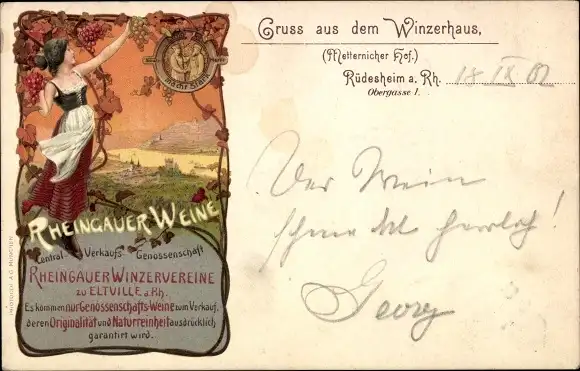 Gruss aus dem Winzerhaus,
(Metternicher Hof.)
Rüdesheim a. Rh. 18 IX 02
Obergasse 1.
Macht Stark
RHEINGAUER WEINE
Central- Verkaufs- Genossenschaft
RHEINGAUER WINZERVEREINE
zu ELTVILLE a. Rh.
Es kommen nur Genossenschafts-Weine zum Verkauf,
deren Originalität und Naturreinheit ausdrücklich
garantirt wird.
Der Wein
schmeckt herrlich!
Georg